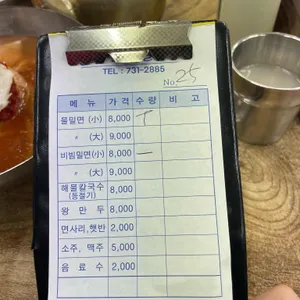 TEL : 731-2885
No. 25
메 뉴 가 격 수 량 비 고
물밀면 (小) 8,000 ㅜ
〃 (大) 9,000
비빔밀면(小) 8,000 一
〃 (大) 9,000
해물칼국수 (동절기) 8,000
왕 만 두 8,000
면사리,햇반 2,000
소주, 맥주 5,000
음 료 수 2,000